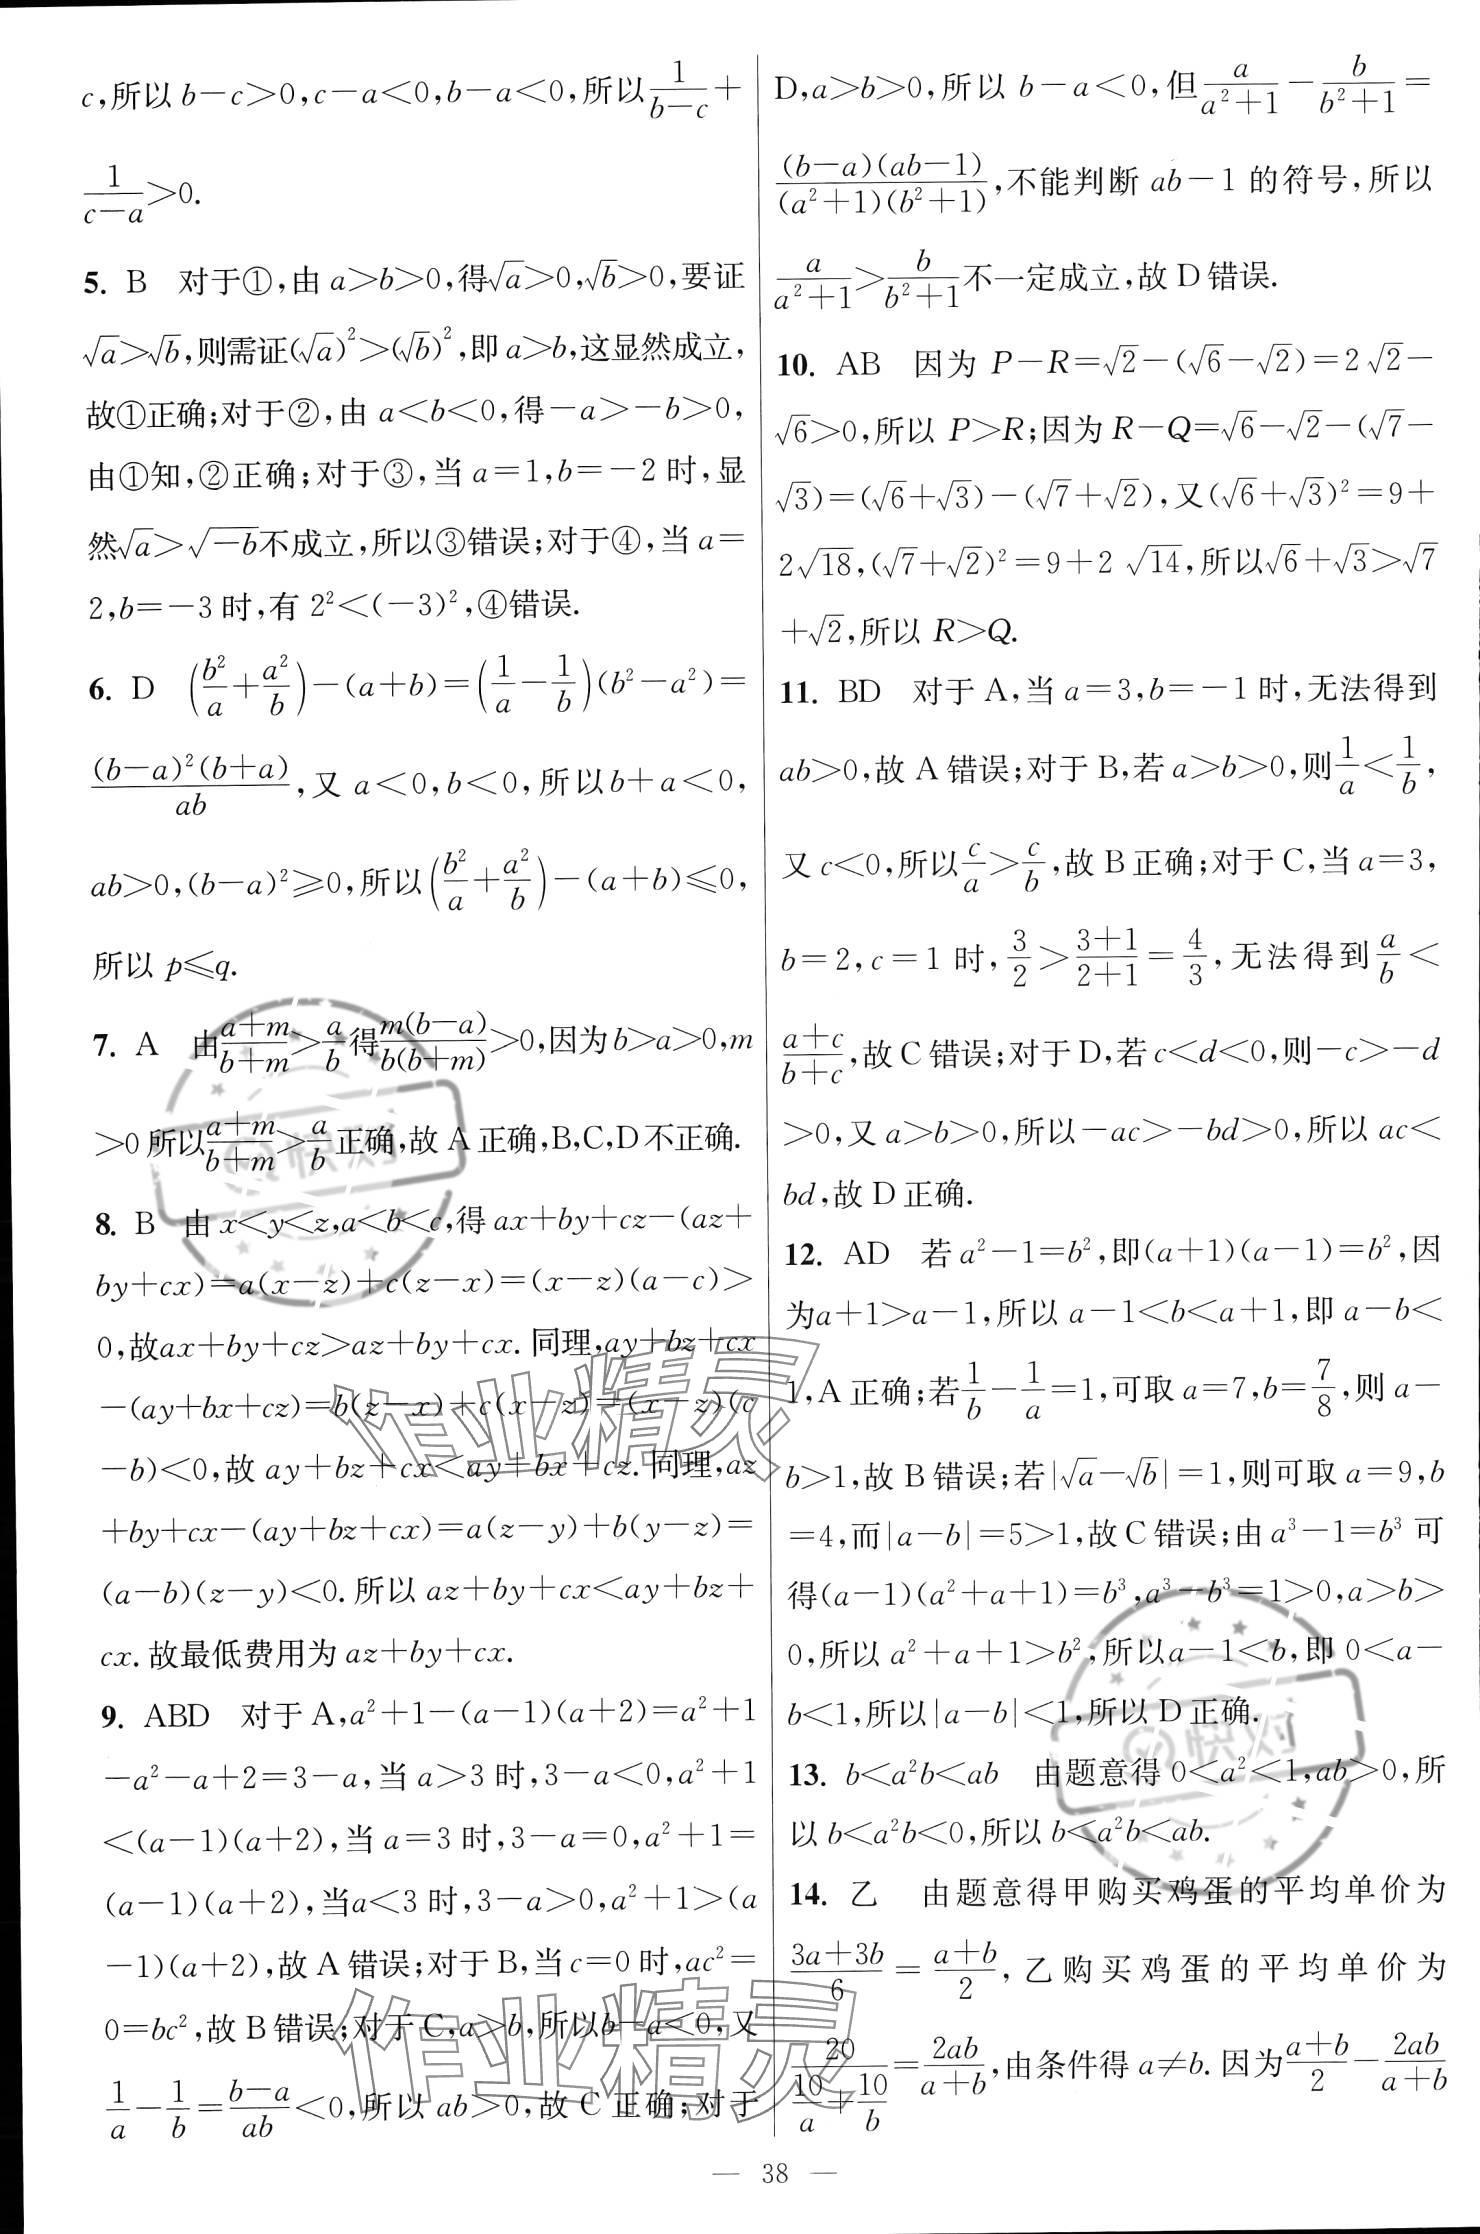 c,所以 b-c>0,c-a<0,b-a<0,所以\frac{1}{b-c}+
\frac{1}{c-a}>0.
5. B 对于①,由 a>b>0,得√a>0,√b>0,要证
√a>√b,则需证(√a)²>(√b)²,即 a>b,这显然成立,
故①正确;对于②,由 a<b<0,得-a>-b>0,
由①知,②正确;对于③,当 a=1,b=-2 时,显
然√a>√-b不成立,所以③错误;对于④,当 a=
2,b=-3 时,有 2²<(-3)²,④错误.
6. D (\frac{b²}{a}+\frac{a²}{b})-(a+b)=(\frac{1}{a}-\frac{1}{b})(b²-a²)=
\frac{(b-a)²(b+a)}{ab},又 a<0,b<0,所以b+a<0,
ab>0,(b-a)²≥0,所以(\frac{b²}{a}+\frac{a²}{b})-(a+b)≤0,
所以 p≤q.
7. A 由\frac{a+m}{b+m}>\frac{a}{b}得\frac{m(b-a)}{b(b+m)}>0,因为b>a>0,m
>0 所以\frac{a+m}{b+m}>\frac{a}{b}正确,故 A 正确,B,C,D不正确.
8. B 由 x<y<z,a<b<c,得 ax+by+cz-(az+
by+cx)=a(x-z)+c(z-x)=(x-z)(a-c)>
0,故ax+by+cz>az+by+cx.同理,ay+bz+cx
-(ay+bx+cz)=b(z-x)+c(x-z)=(x-z)(c
-b)<0,故 ay+bz+cx<ay+bx+cz.同理,az
+by+cx-(ay+bz+cx)=a(z-y)+b(y-z)=
(a-b)(z-y)<0.所以 az+by+cx<ay+bz+
cx.故最低费用为 az+by+cx.
9. ABD 对于 A,a²+1-(a-1)(a+2)=a²+1
-a²-a+2=3-a,当 a>3 时,3-a<0,a²+1
<(a-1)(a+2),当 a=3 时,3-a=0,a²+1=
(a-1)(a+2),当a<3 时,3-a>0,a²+1>(a
-1)(a+2),故 A 错误;对于 B,当 c=0 时,ac²=
0=bc²,故 B 错误;对于 C,a>b,所以b-a<0,又
\frac{1}{a}-\frac{1}{b}=\frac{b-a}{ab}<0,所以 ab>0,故 C 正确;对于
D,a>b>0,所以 b-a<0,但\frac{a}{a²+1}-\frac{b}{b²+1}=
\frac{(b-a)(ab-1)}{(a²+1)(b²+1)},不能判断 ab-1 的符号,所以
\frac{a}{a²+1}>\frac{b}{b²+1}不一定成立,故 D 错误.
10. AB 因为 P-R=√2-(√6-√2)=2√2-
√6>0,所以 P>R;因为 R-Q=√6-√2-(√7-
√3)=(√6+√3)-(√7+√2),又(√6+√3)²=9+
2√18,(√7+√2)²=9+2√14,所以√6+√3>√7
+√2,所以 R>Q.
11. BD 对于 A,当 a=3,b=-1 时,无法得到
ab>0,故 A 错误;对于 B,若 a>b>0,则\frac{1}{a}<\frac{1}{b},
又 c<0,所以\frac{c}{a}>\frac{c}{b},故 B 正确;对于 C,当 a=3,
b=2,c=1 时,\frac{3}{2}>\frac{3+1}{2+1}=\frac{4}{3},无法得到\frac{a}{b}<
\frac{a+c}{b+c},故 C 错误;对于 D,若 c<d<0,则-c>-d
>0,又 a>b>0,所以-ac>-bd>0,所以 ac<
bd,故 D 正确.
12. AD 若 a²-1=b²,即(a+1)(a-1)=b²,因
为a+1>a-1,所以 a-1<b<a+1,即 a-b<
1,A 正确;若\frac{1}{b}-\frac{1}{a}=1,可取 a=7,b=\frac{7}{8},则 a-
b>1,故 B 错误;若|√a-√b|=1,则可取 a=9,b
=4,而|a-b|=5>1,故 C 错误;由 a³-1=b³ 可
得(a-1)(a²+a+1)=b³,a³-b³=1>0,a>b>
0,所以 a²+a+1>b²,所以a-1<b,即 0<a-
b<1,所以|a-b|<1,所以 D 正确.
13. b<a²b<ab 由题意得 0<a²<1,ab>0,所
以 b<a²b<0,所以 b<a²b<ab.
14. 乙 由题意得甲购买鸡蛋的平均单价为
\frac{3a+3b}{6}=\frac{a+b}{2},乙购买鸡蛋的平均单价为
\frac{20}{\frac{10}{a}+\frac{10}{b}}=\frac{2ab}{a+b},由条件得 a≠b.因为\frac{a+b}{2}-\frac{2ab}{a+b}
— 38 —
快对
作业精灵
快对
作业精灵